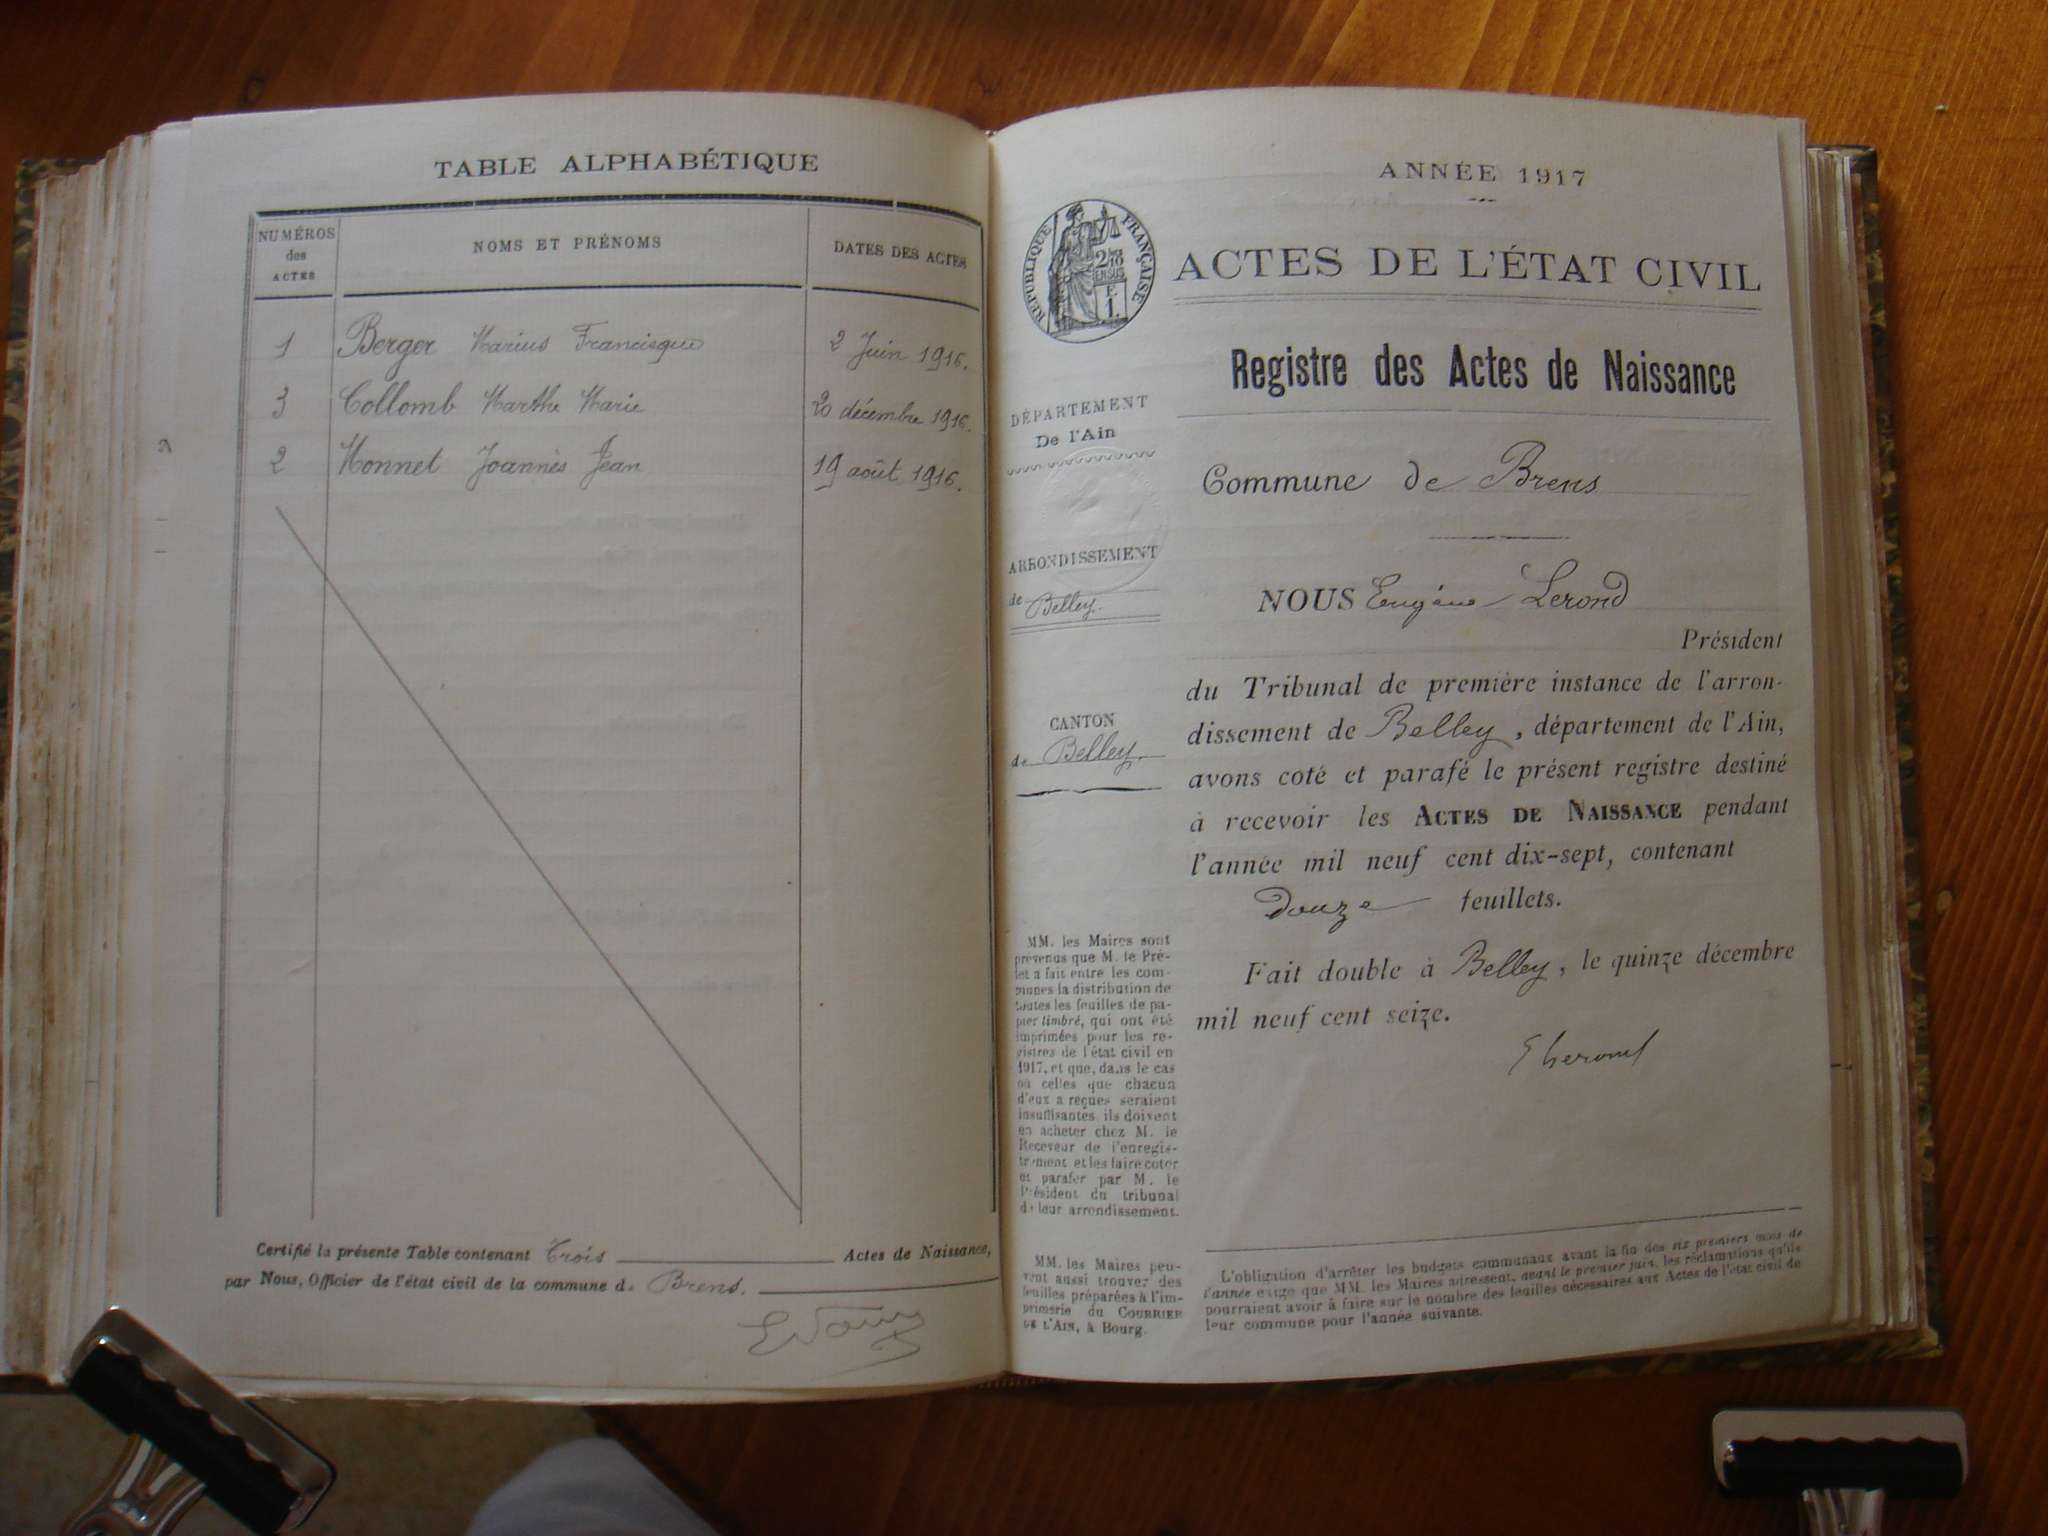 TABLE ALPHABÉTIQUE
NUMÉROS
des
ACTES
NOMS ET PRÉNOMS
DATES DES ACTES
1 Berger Marius Francisque 2 Juin 1916.
3 Collomb Marthe Marie 20 décembre 1916.
2 Monnet Joannès Jean 19 août 1916.
Certifié la présente Table contenant Trois Actes de Naissance,
par Nous, Officier de l'état civil de la commune de Brens.
ANNÉE 1917
RÉPUBLIQUE FRANÇAISE
ACTES DE L'ÉTAT CIVIL
Registre des Actes de Naissance
DÉPARTEMENT
De l'Ain
Commune de Brens
ARRONDISSEMENT
de Belley.
NOUS Eugène Lerond
Président
du Tribunal de première instance de l'arron-
dissement de Belley, département de l'Ain,
avons coté et parafé le présent registre destiné
à recevoir les ACTES DE NAISSANCE pendant
l'année mil neuf cent dix-sept, contenant
Douze feuillets.
Fait double à Belley, le quinze décembre
mil neuf cent seize.
CANTON
de Belley.
MM. les Maires sont
prévenus que M. le Pré-
fet a fait entre les com-
munes la distribution de
toutes les feuilles de pa-
pier timbré, qui ont été
imprimées pour les re-
gistres de l'état civil en
1917, et que, dans le cas
où celles que chacun
d'eux a reçues seraient
insuffisantes, ils doivent
en acheter chez M. le
Receveur de l'enregis-
trement et les faire coter
et parafer par M. le
Président du tribunal
de leur arrondissement.
MM. les Maires peu-
vent aussi trouver des
feuilles préparées à l'im-
primerie du COURRIER
DE L'AIN, à Bourg.
L'obligation d'arrêter les budgets communaux avant la fin des six premiers mois de
l'année exige que MM. les Maires adressent, avant le premier juin, les réclamations qu'ils
pourraient avoir à faire sur le nombre des feuilles nécessaires aux Actes de l'état civil de
leur commune pour l'année suivante.